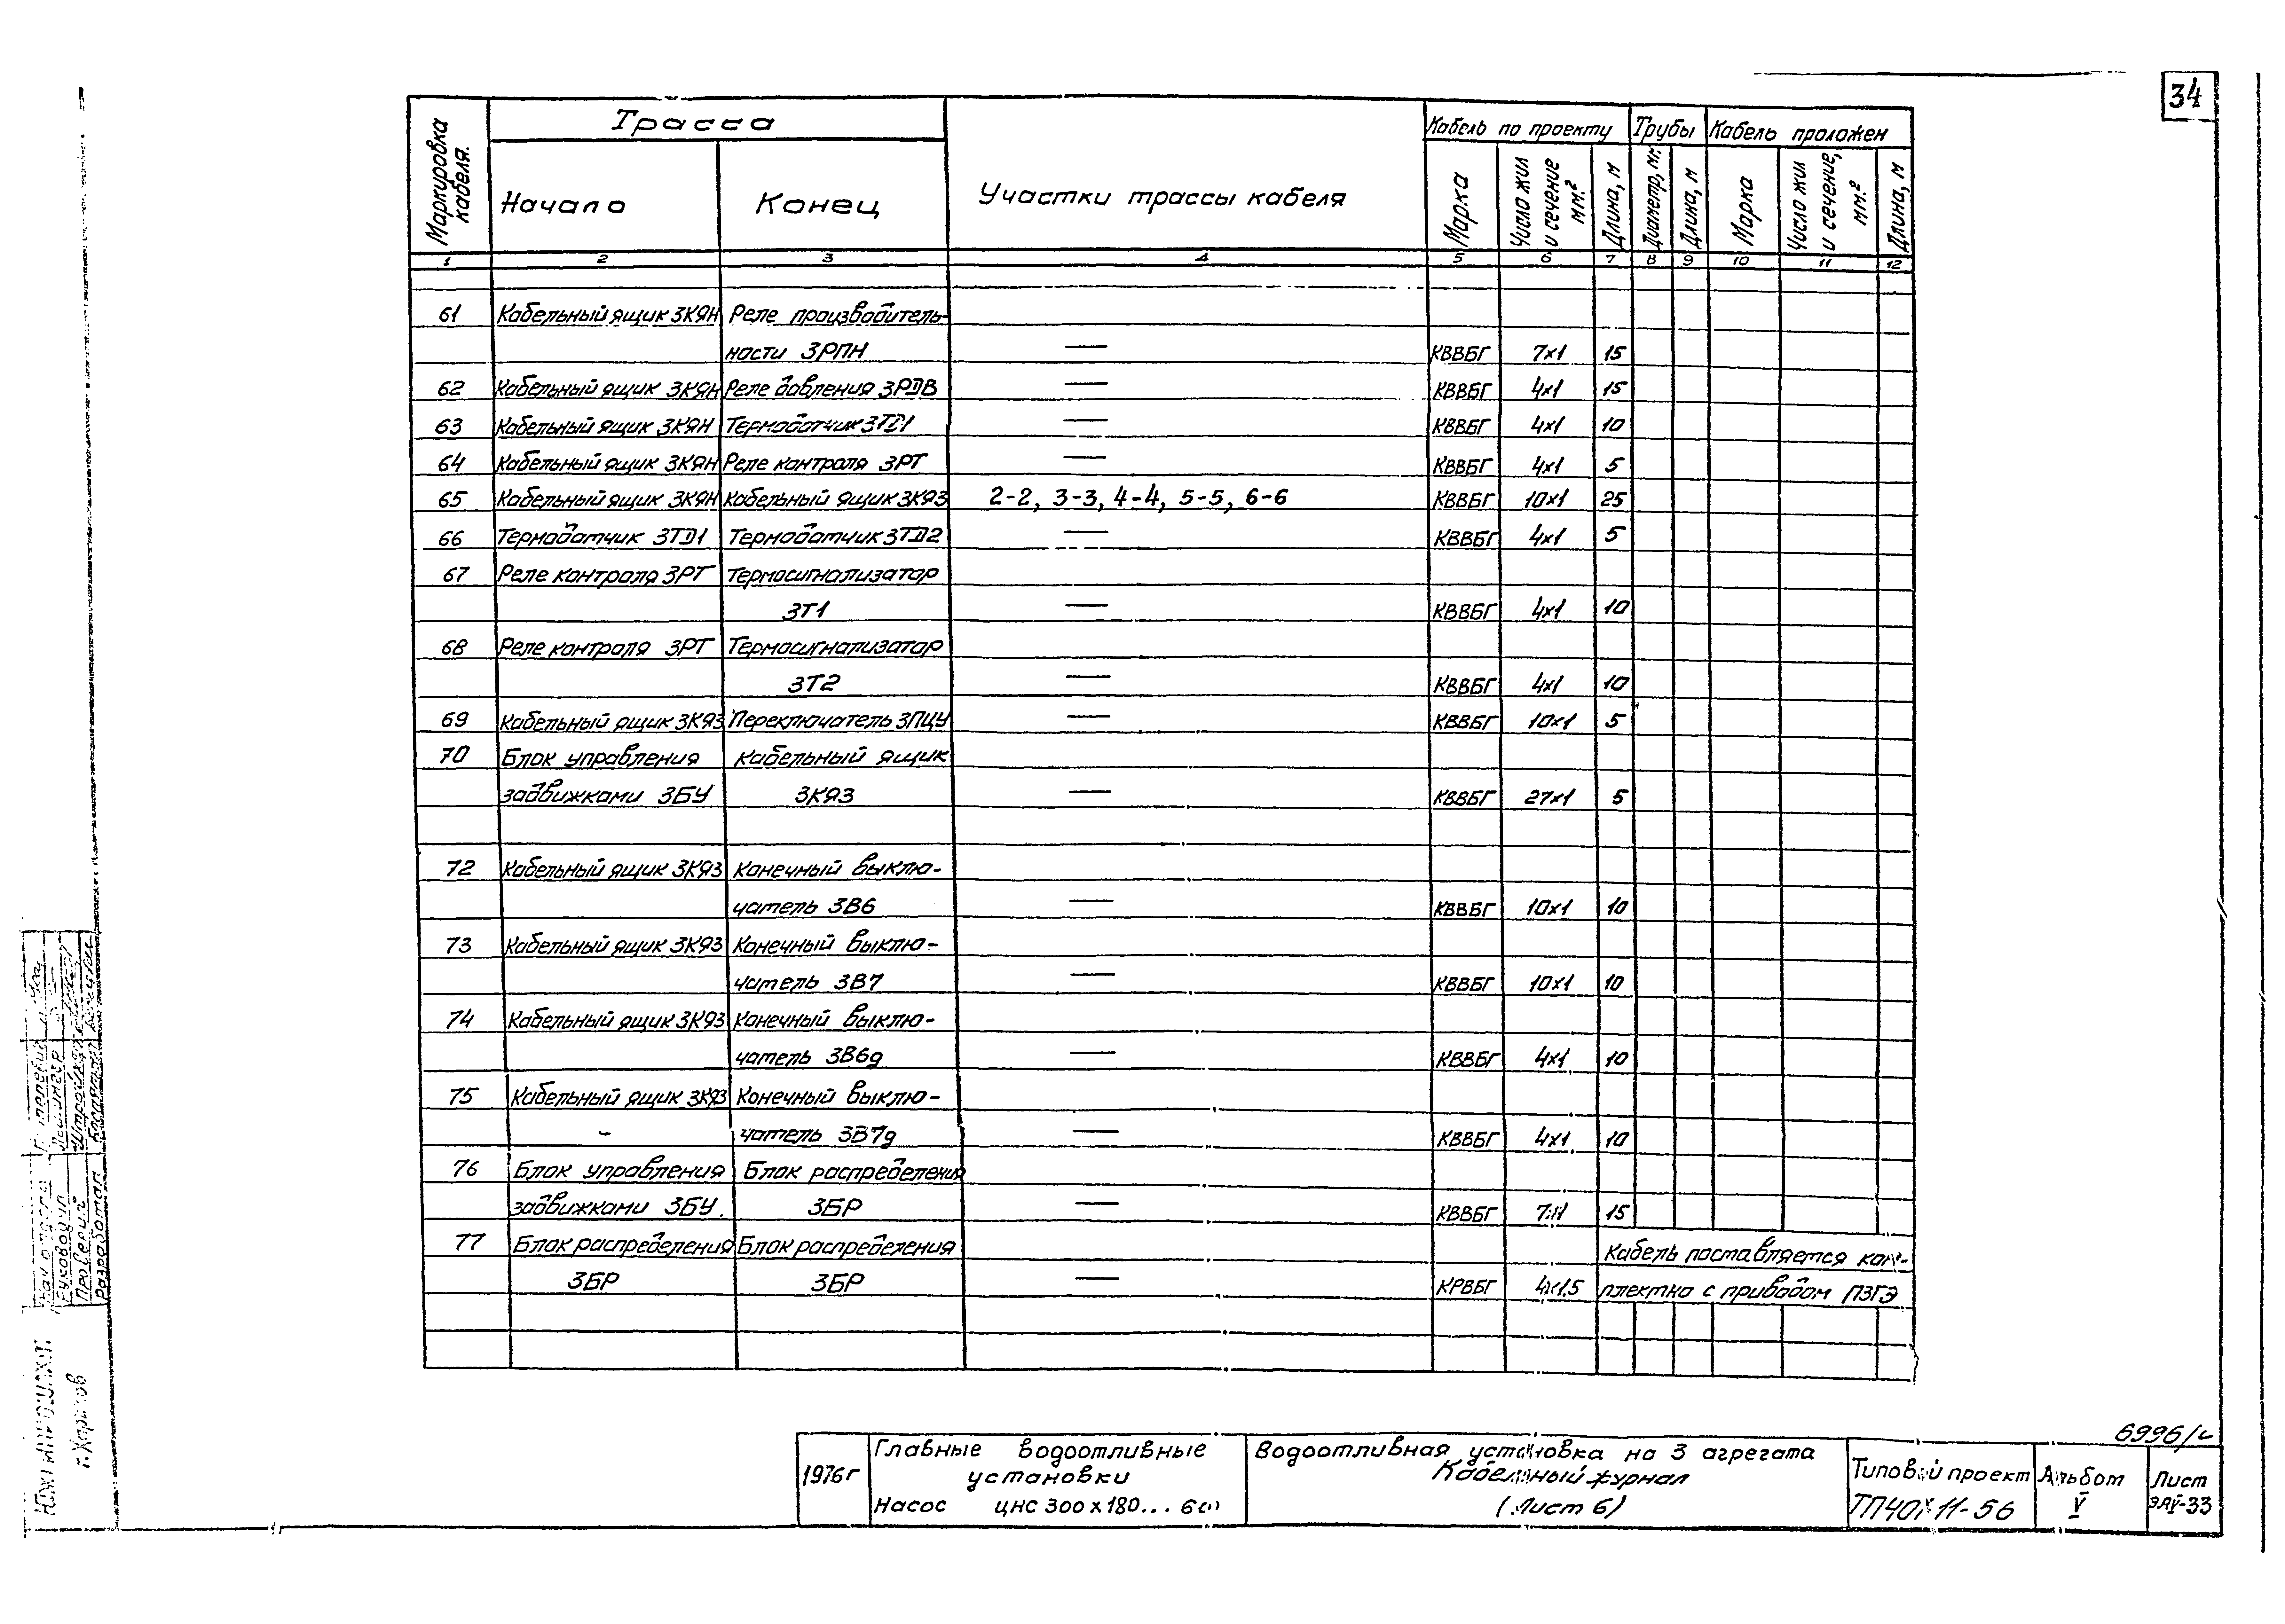 34
Маркировка кабеля.
Трасса
Начало
Конец
Участки трассы кабеля
Кабель по проекту
Марка
Число жил и сечение мм.²
Длина, м
Трубы
Диаметр, мм.
Длина, м
Кабель проложен
Марка
Число жил и сечение, мм.²
Длина, м
1 2 3 4 5 6 7 8 9 10 11 12
61 Кабельный ящик 3КЯН Реле производитель-
ности 3РПН — КВВБГ 7х1 15
62 Кабельный ящик 3КЯН Реле давления 3РДВ — КВВБГ 4х1 15
63 Кабельный ящик 3КЯН Термодатчик 3ТД1 — КВВБГ 4х1 10
64 Кабельный ящик 3КЯН Реле контроля 3РТ — КВВБГ 4х1 5
65 Кабельный ящик 3КЯН Кабельный ящик 3КЯЗ 2-2, 3-3, 4-4, 5-5, 6-6 КВВБГ 10х1 25
66 Термодатчик 3ТД1 Термодатчик 3ТД2 — КВВБГ 4х1 5
67 Реле контроля 3РТ Термосигнализатор
3Т1 — КВВБГ 4х1 10
68 Реле контроля 3РТ Термосигнализатор
3Т2 — КВВБГ 4х1 10
69 Кабельный ящик 3КЯЗ Переключатель 3ПЦУ — КВВБГ 10х1 5
70 Блок управления Кабельный ящик
задвижками 3БУ 3КЯЗ — КВВБГ 27х1 5
72 Кабельный ящик 3КЯЗ Конечный выклю-
чатель 3В6 — КВВБГ 10х1 10
73 Кабельный ящик 3КЯЗ Конечный выклю-
чатель 3В7 — КВВБГ 10х1 10
74 Кабельный ящик 3КЯЗ Конечный выклю-
чатель 3В6д — КВВБГ 4х1 10
75 Кабельный ящик 3КЯЗ Конечный выклю-
- чатель 3В7д — КВВБГ 4х1 10
76 Блок управления Блок распределения
задвижками 3БУ. 3БР — КВВБГ 7х1 15
77 Блок распределения Блок распределения Кабель поставляется ком-
3БР 3БР — КРВБГ 4х1,5 плектно с приводом ПЗГЭ
6996/
1976г
Главные водоотливные
установки
Насос ЦНС 300х180...
Водоотливная установка на 3 агрегата
Кабельный журнал
(Лист 6)
Типовой проект
11-56
Альбом
V
Лист
33
Руководил
Проверил
Разработал
г. Харьков